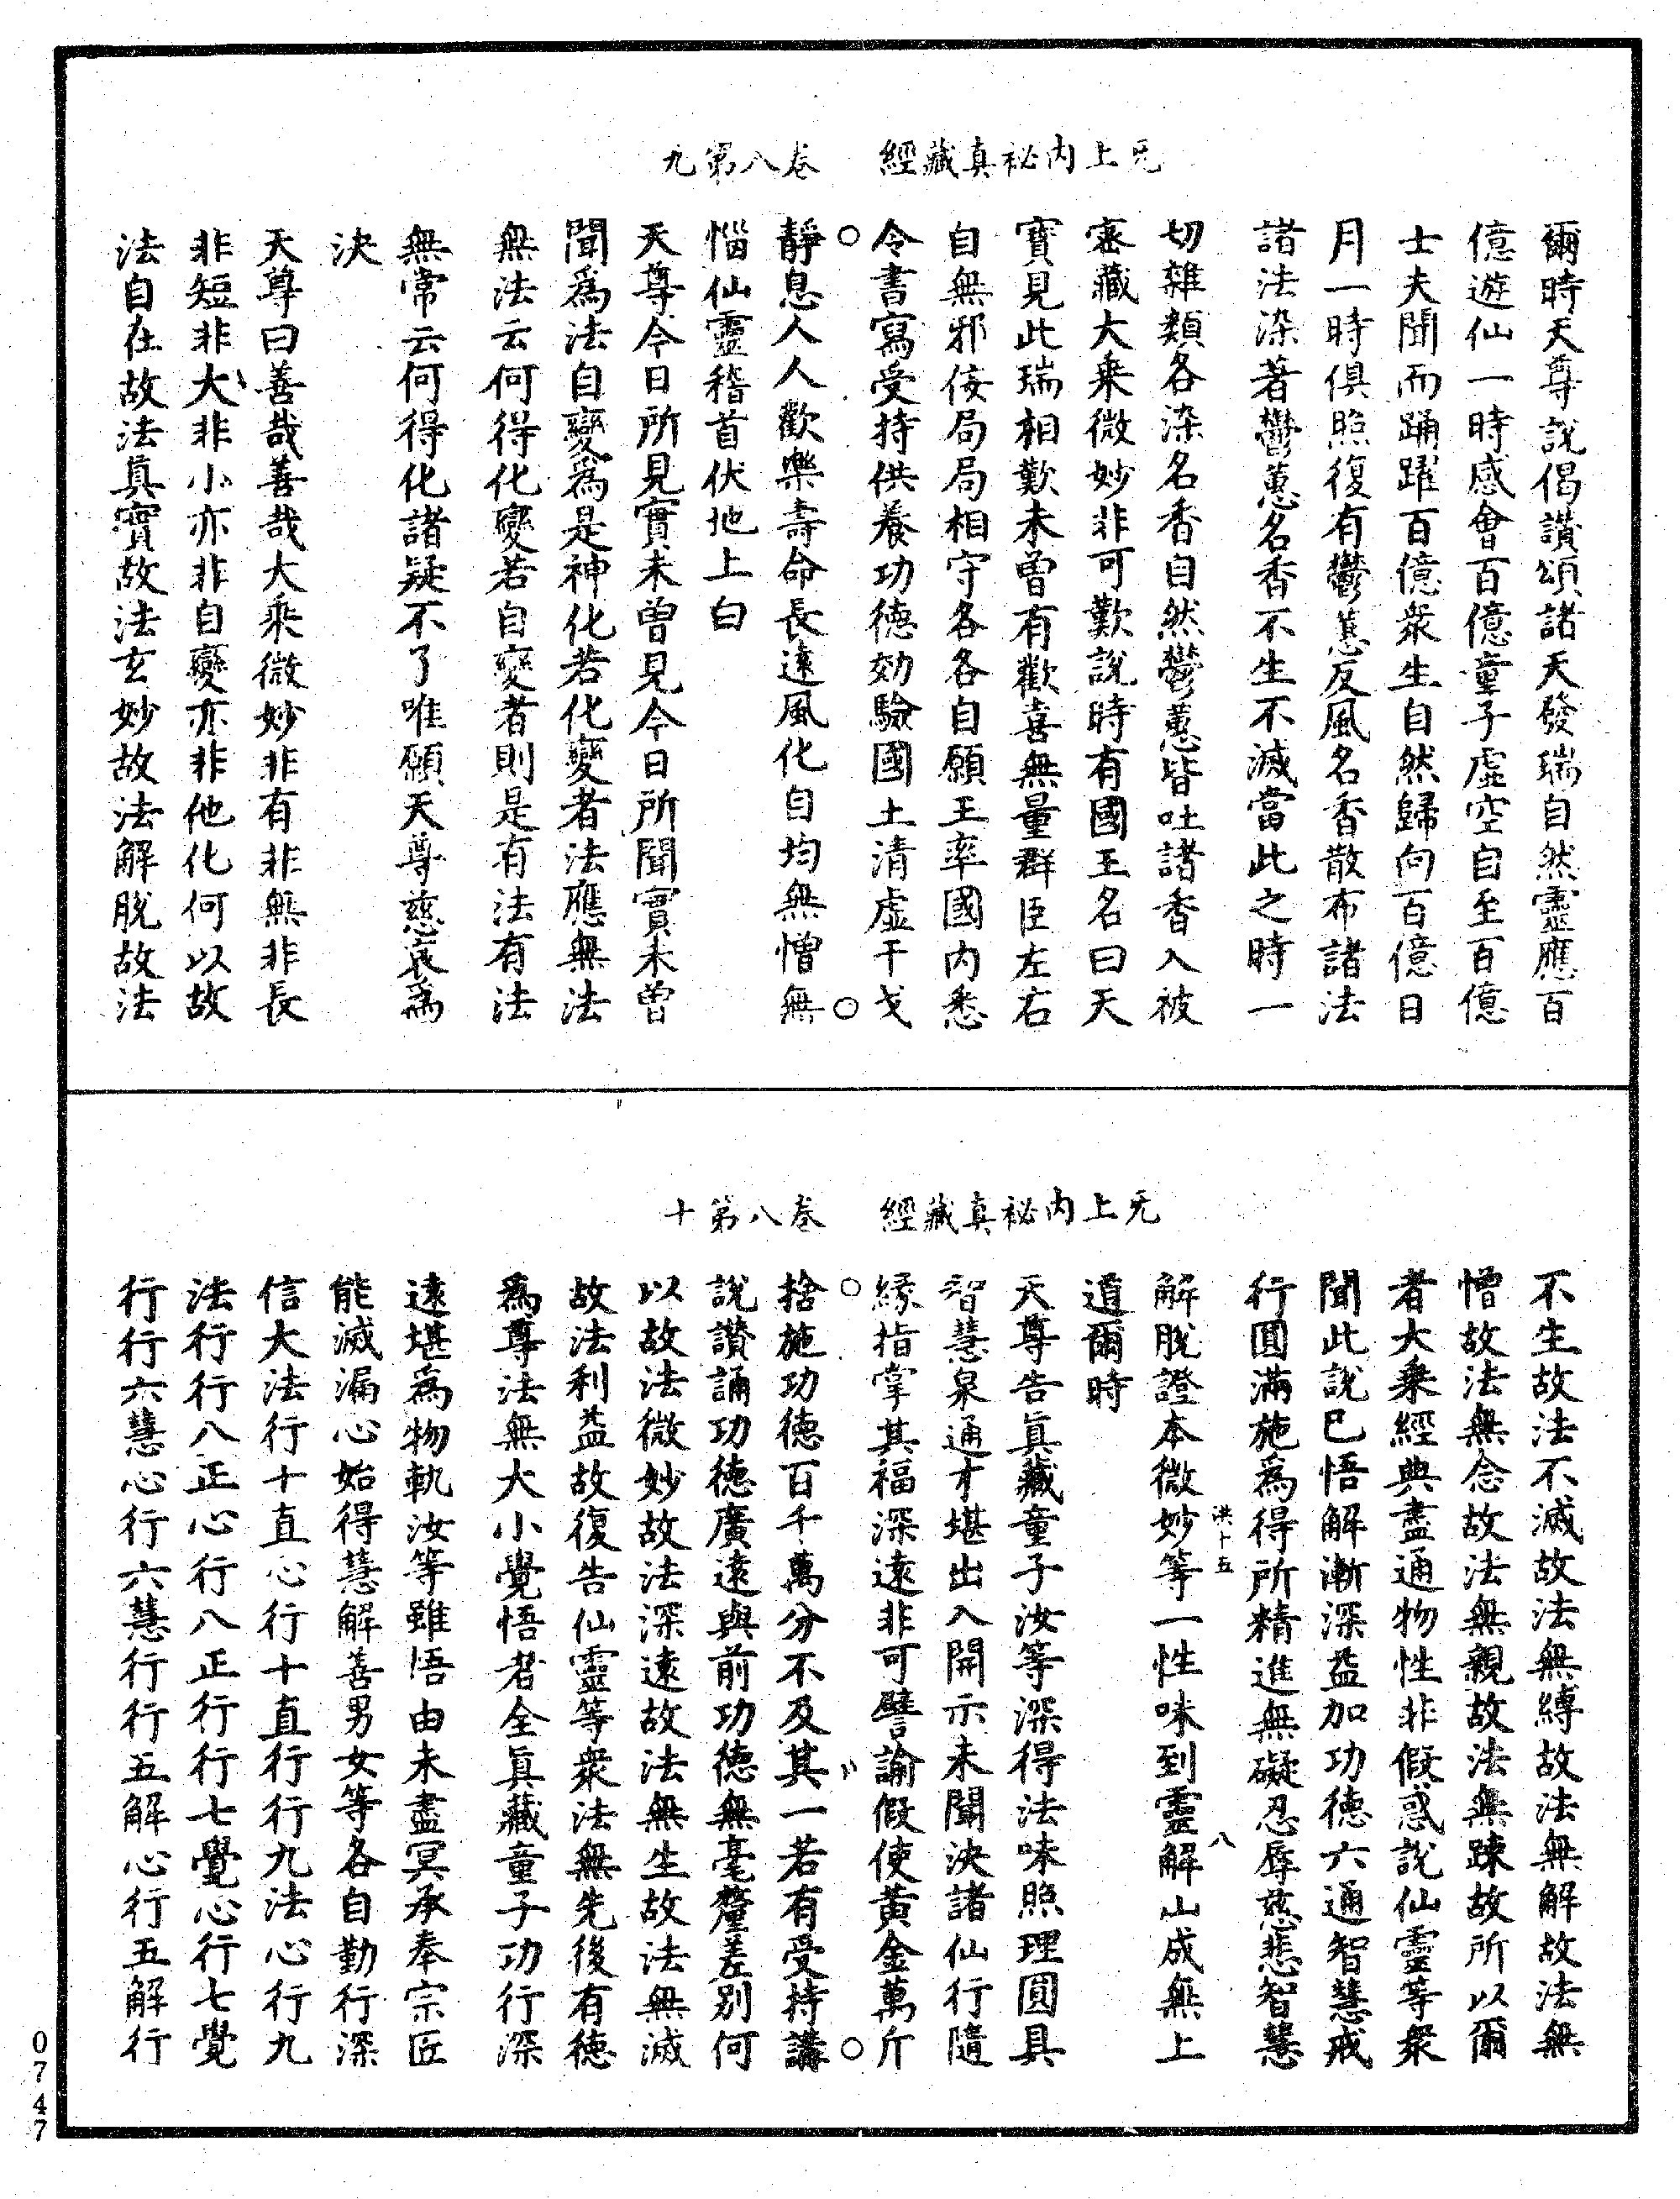 无上內祕真藏經　卷八第九
爾時天尊說偈讚頌諸天發瑞自然靈應百
億遊仙一時感會百億童子虛空自至百億
士夫聞而踊躍百億衆生自然歸向百億日
月一時俱照復有鬱蒽反風名香散布諸法
諸法染著鬱蒽名香不生不滅當此之時一
切雜類各染名香自然鬱蒽皆吐諸香入被
密藏大乘微妙非可歎說時有國王名曰天
寶見此瑞相歎未曾有歡喜無量群臣左右
自無邪佞局局相守各各自願王率國內悉
令書寫受持供養功德効驗國土清虛干戈
靜息人人歡樂壽命長遠風化自均無憎無
惱仙靈稽首伏地上白
天尊今日所見實未曾見今日所聞實未曾
聞爲法自變爲是神化若化變者法應無法
無法云何得化變若自變者則是有法有法
無常云何得化諸疑不了唯願天尊慈哀爲
決
天尊曰善哉善哉大乘微妙非有非無非長
非短非大非小亦非自變亦非他化何以故
法自在故法真實故法玄妙故法解脫故法
无上內祕真藏經　卷八第十
不生故法不滅故法無縛故法無解故法無
憎故法無念故法無親故法無踈故所以爾
者大乘經典盡通物性非假惑說仙靈等衆
聞此說已悟解漸深益加功德六通智慧戒
行圓滿施爲得所精進無礙忍辱慈悲智慧
洪十五　八
解脫證本微妙等一性味到靈解山成無上
道爾時
天尊告眞藏童子汝等深得法味照理圓具
智慧泉通才堪出入開示未聞決諸仙行隨
緣指掌其福深遠非可譬諭假使黃金萬斤
捨施功德百千萬分不及其一若有受持講
說讚誦功德廣遠與前功德無毫釐差別何
以故法微妙故法深遠故法無生故法無滅
故法利益故復告仙靈等衆法無先後有德
爲尊法無大小覺悟者全眞藏童子功行深
遠堪爲物軌汝等雖悟由未盡冥承奉宗匠
能滅漏心始得慧解善男女等各自勤行深
信大法行十直心行十直行行九法心行九
法行行八正心行八正行行七覺心行七覺
行行六慧心行六慧行行五解心行五解行
0747